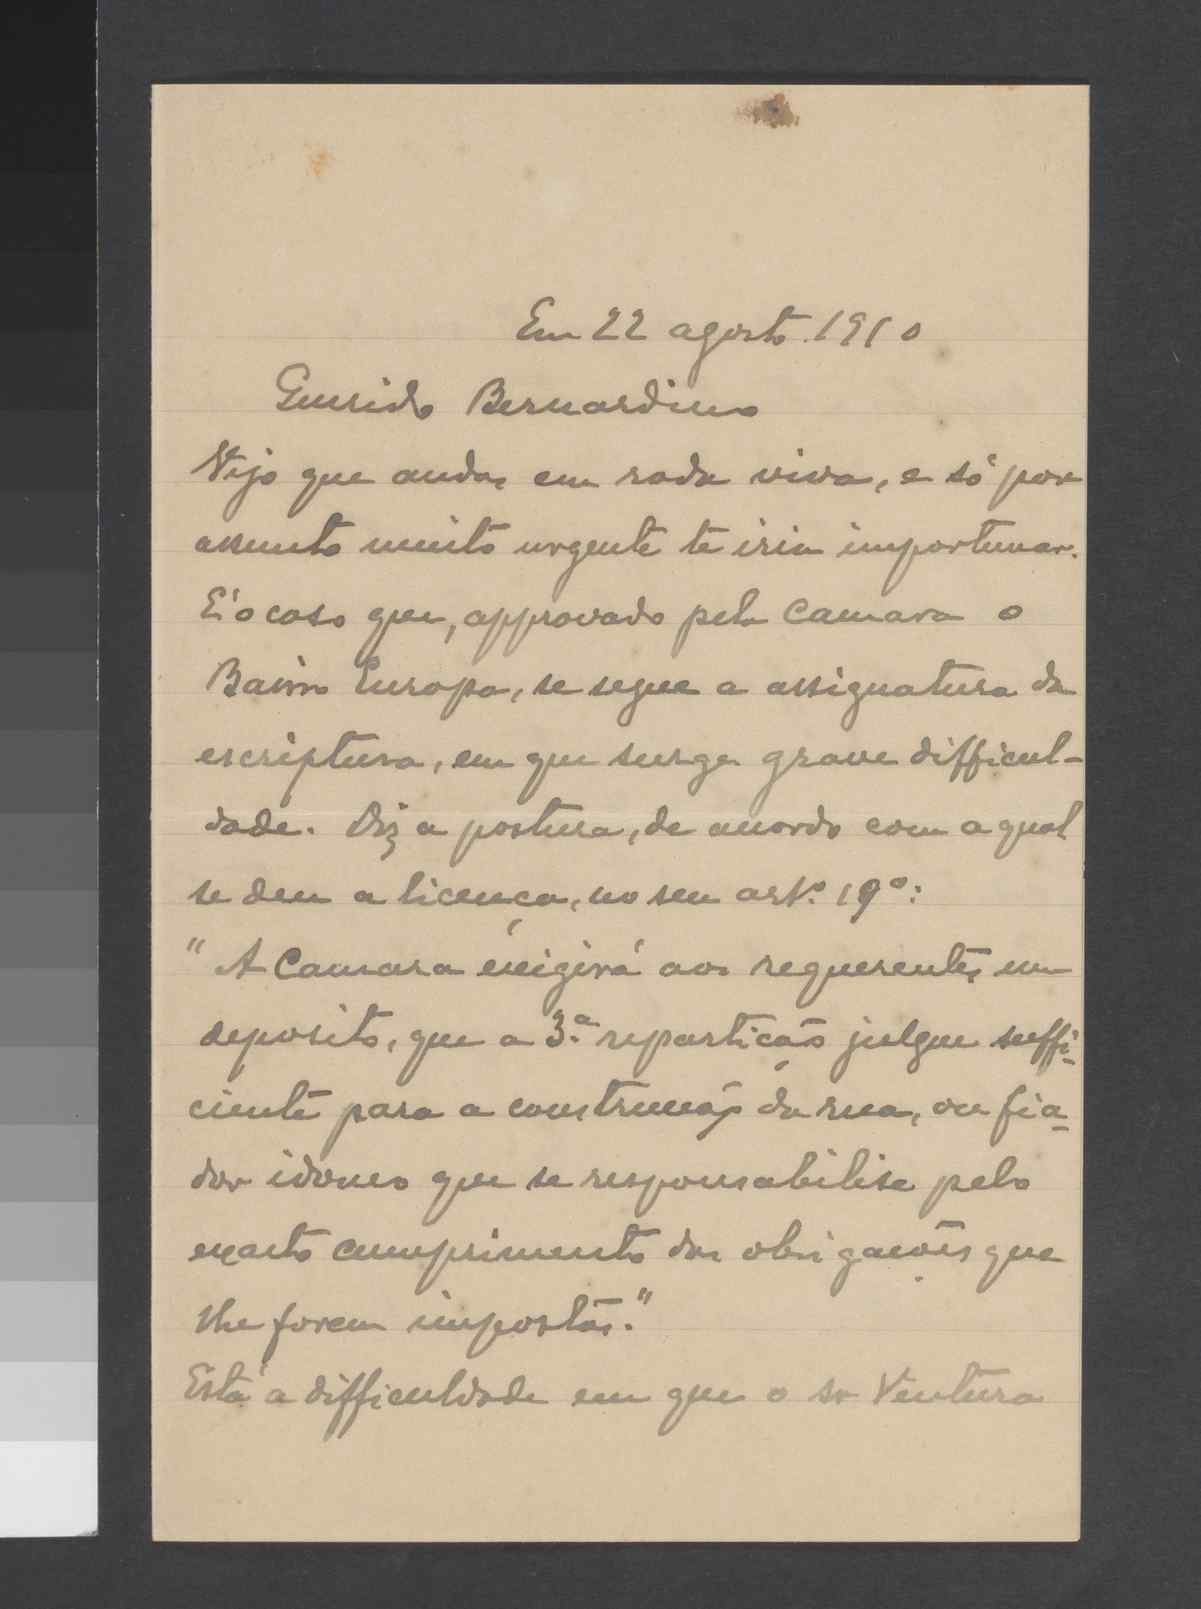 Em 22 agosto 1910
Querido Bernardino
Vejo que andas em roda viva, e só por
assumto muito urgente te iria importunar.
E' o caso que, approvado pela Camara o
Bairro Europa, se segue a assignatura da
escriptura, em que surge grave difficul-
dade. Diz a postura, de accordo com a qual
se deu a licença, no seu artº. 19º:
"A Camara exigirá aos requerentes um
deposito, que a 3.ª repartição julgue suffi-
ciente para a construcção da rua, ou fia-
dor idoneo que se responsabilise pelo
exacto cumprimento das obrigações que
lhe forem impostas."
Está a difficuldade em que o sr Ventura